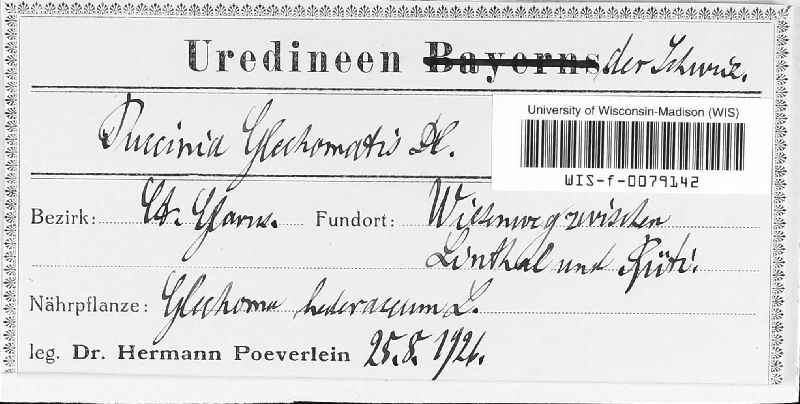 Uredineen Bayerns der Schweiz.
University of Wisconsin-Madison (WIS)
WIS-f-0079142
Puccinia Glechomatis DC.
Bezirk: Ct. Glarus. Fundort: Wiesenweg zwischen
Linthal und Rüti.
Nährpflanze: Glechoma hederaceum L.
leg. Dr. Hermann Poeverlein 25.8.1926.